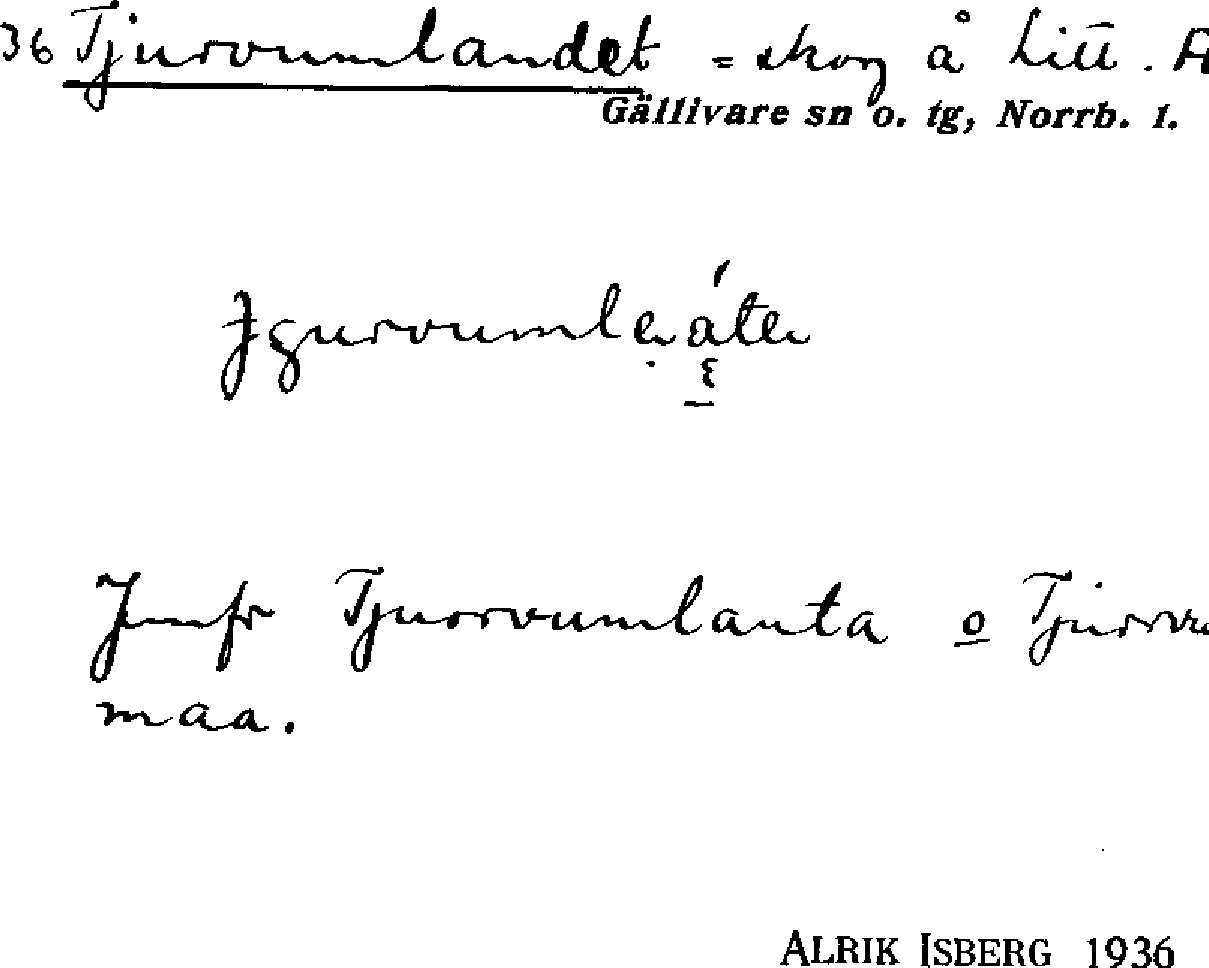 36 Tjurvumlandet = skog å Litt. A
Gällivare sn o. tg, Norrb. l.
Jmfr Tjuorvumlanta o Tjurrvu
maa.
ALRIK ISBERG 1936